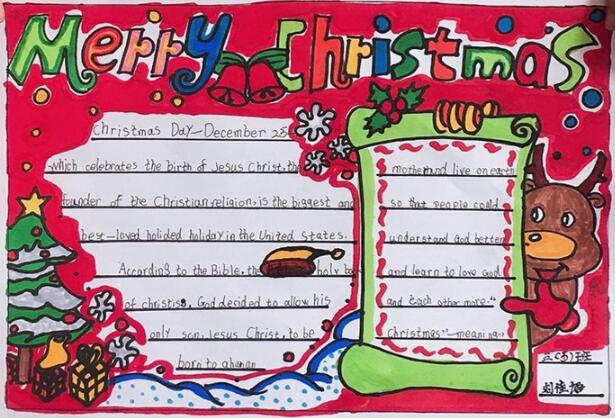 Merry Christmas
Christmas Day—December 25
which celebrates the birth of Jesus Christ, the
founder of the Christian religion, is the biggest and
best-loved holided holiday in the United States.
According to the Bible, the holy bo
of christiss, God decided to allow his
only son, Jesus Christ, to be
born to ahuman
mother and live on earth
so that people could
understand God better
and learn to love God
and each other more."
Christmas"—meaning"
班